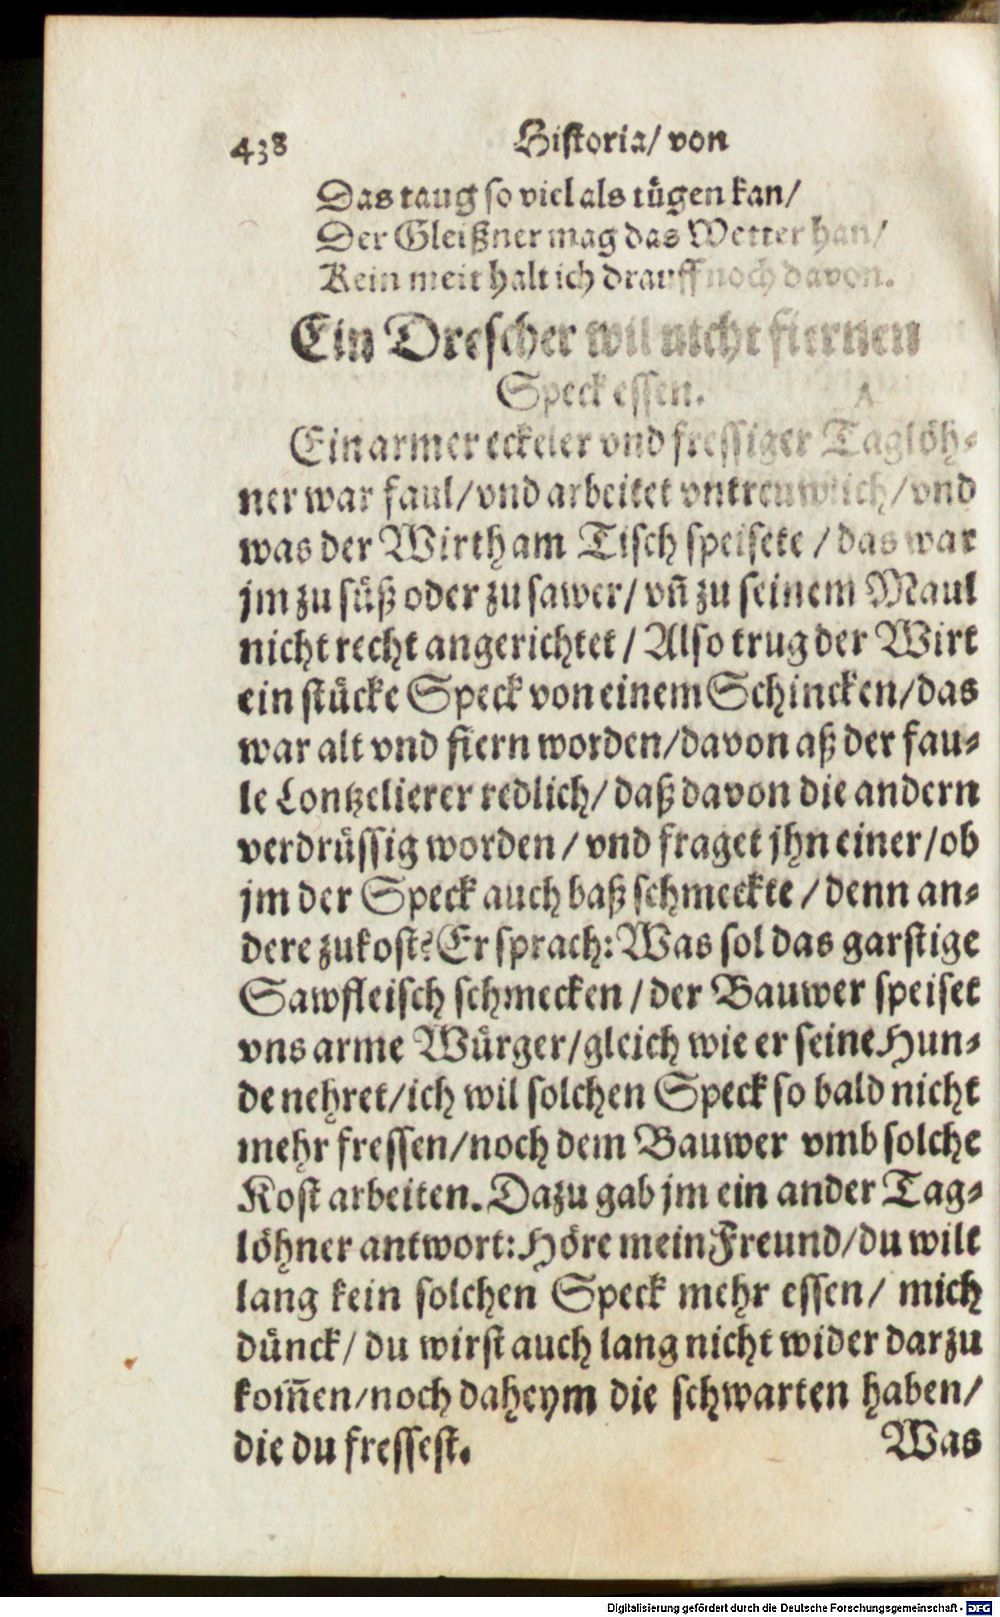 438 Historia/ von
Das taug so viel als tügen kan/
Der Gleißner mag das Wetter han/
Kein meit halt ich drauff noch davon.
Ein Drescher wil nicht fiernen
Speck essen.
Ein armer eckeler vnd fressiger Taglöh-
ner war faul/vnd arbeitet vntreuwlich/vnd
was der Wirth am Tisch speisete /das war
jm zu süß oder zu sawer/ vñ zu seinem Maul
nicht recht angerichtet / Also trug der Wirt
ein stücke Speck von einem Schincken/das
war alt vnd fiern worden/davon aß der fau-
le Lontzelierer redlich/ daß davon die andern
verdrüssig worden / vnd fraget jhn einer/ob
jm der Speck auch baß schmeckte /denn an-
dere zukost? Er sprach: Was sol das garstige
Sawfleisch schmecken /der Bauwer speiset
vns arme Würger/gleich wie er seine Hun-
de nehret/ich wil solchen Speck so bald nicht
mehr fressen/noch dem Bauwer vmb solche
Kost arbeiten. Dazu gab jm ein ander Tag-
löhner antwort: Höre mein Freund/du wilt
lang kein solchen Speck mehr essen/ mich
dünck/ du wirst auch lang nicht wider darzu
kom̃en/noch daheym die schwarten haben/
die du fressest. Was
Digitalisierung gefördert durch die Deutsche Forschungsgemeinschaft - DFG